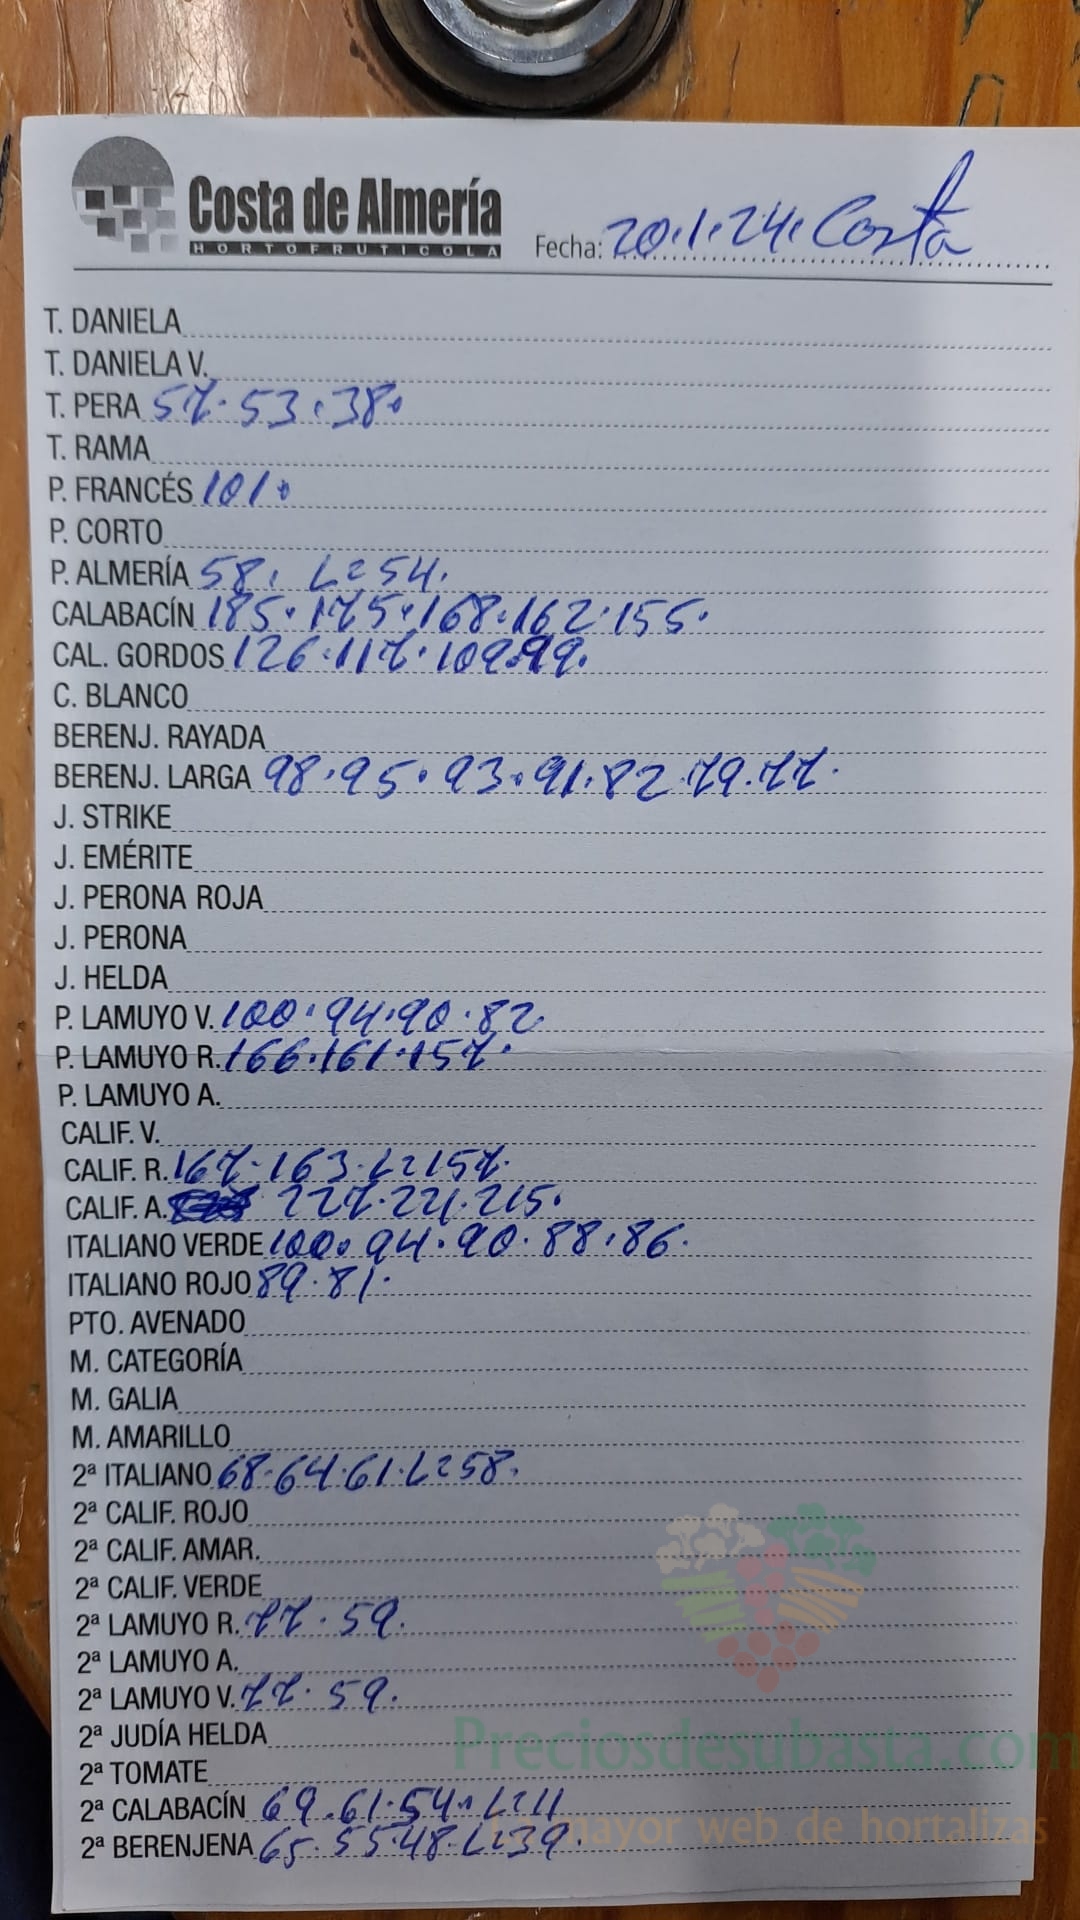 Costa de Almería
HORTOFRUTICOLA
Fecha: 20.1.24. Costa
T. DANIELA
T. DANIELA V.
T. PERA 57.53.38.
T. RAMA
P. FRANCÉS 101.
P. CORTO
P. ALMERÍA 58. L=54.
CALABACÍN 185.175.168.162.155.
CAL. GORDOS 126.117.109.99.
C. BLANCO
BERENJ. RAYADA
BERENJ. LARGA 98.95.93.91.82.79.77.
J. STRIKE
J. EMÉRITE
J. PERONA ROJA
J. PERONA
J. HELDA
P. LAMUYO V. 100.94.90.82.
P. LAMUYO R. 166.161.157.
P. LAMUYO A.
CALIF. V.
CALIF. R. 167.163.L=157.
CALIF. A. 227.221.215.
ITALIANO VERDE 100.94.90.88.86.
ITALIANO ROJO 89.81.
PTO. AVENADO
M. CATEGORÍA
M. GALIA
M. AMARILLO
2ª ITALIANO 68.64.61.L=58.
2ª CALIF. ROJO
2ª CALIF. AMAR.
2ª CALIF. VERDE
2ª LAMUYO R. 77.59.
2ª LAMUYO A.
2ª LAMUYO V. 77.59.
2ª JUDÍA HELDA
Preciosdesubasta.com
2ª TOMATE
2ª CALABACÍN 69.61.54.L=11
La mayor web de hortalizas
2ª BERENJENA 65.55.48.L=39.